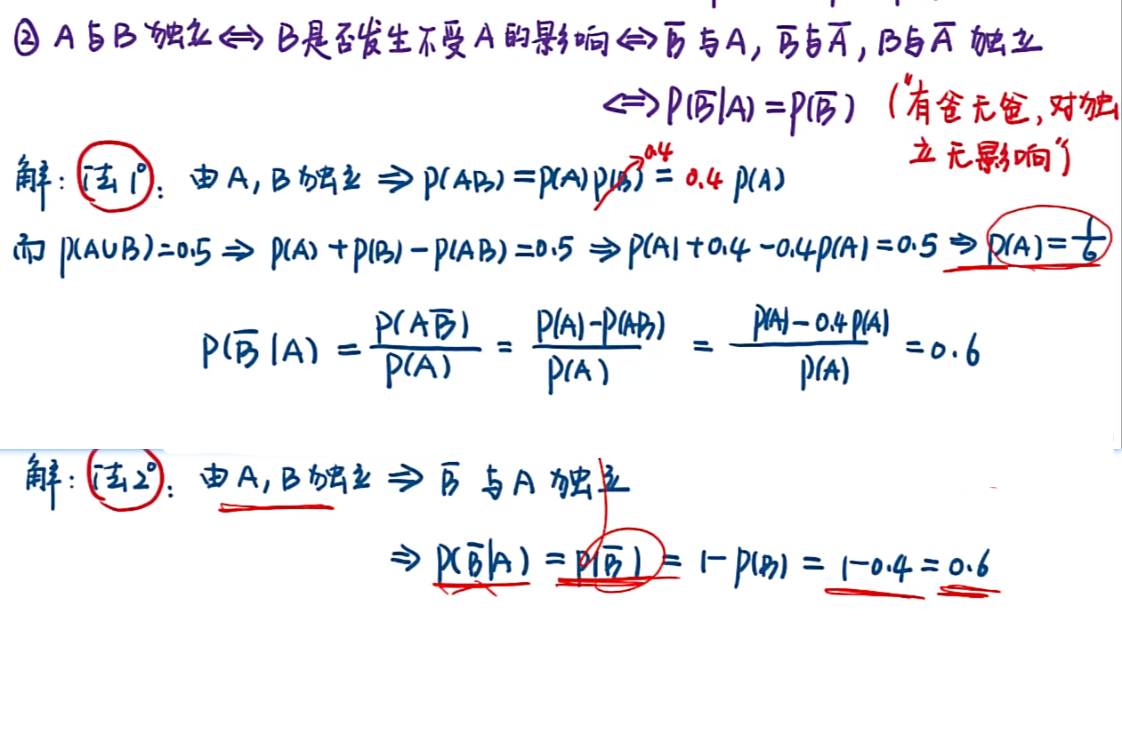 ② A与B独立⇔B是否发生不受A的影响⇔B̅与A, B̅与A̅, B与A̅ 独立
⇔P(B̅|A)=P(B̅) ("有爸无爸,对独
立无影响")
解: 法1°: 由A,B独立 ⇒ P(AB)=P(A)P(B)= 0.4 P(A)
0.4
而 P(A∪B)=0.5 ⇒ P(A)+P(B)-P(AB)=0.5 ⇒ P(A)+0.4-0.4P(A)=0.5 ⇒ P(A)=1/6
P(B̅|A) = P(AB̅)/P(A) = P(A)-P(AB)/P(A) = P(A)-0.4P(A)/P(A) =0.6
解: 法2°: 由A,B独立 ⇒ B̅ 与A独立
⇒ P(B̅|A) = P(B̅) = 1-P(B) = 1-0.4 = 0.6